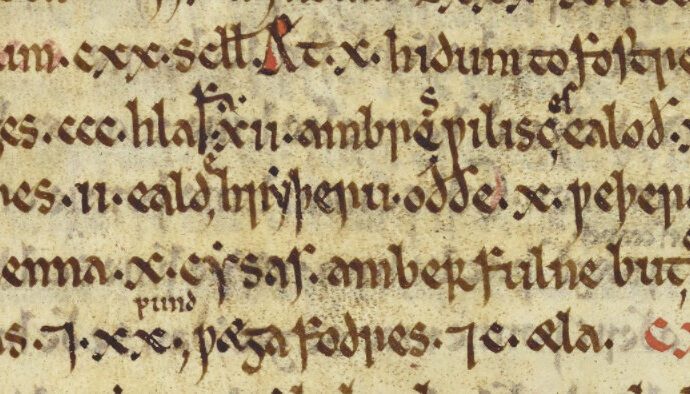 am. cxx. scll. Æt. x. hidum to fostre
es. ccc. hlafa. xii. ambres ƿilisces ealoð.
es. ii. ealde hryþeru. oððe. x. ƿeþeru
enna. x. cysas. amber fulne but
s. ⁊. xx. pund ƿæga fodres. ⁊ c. æla.